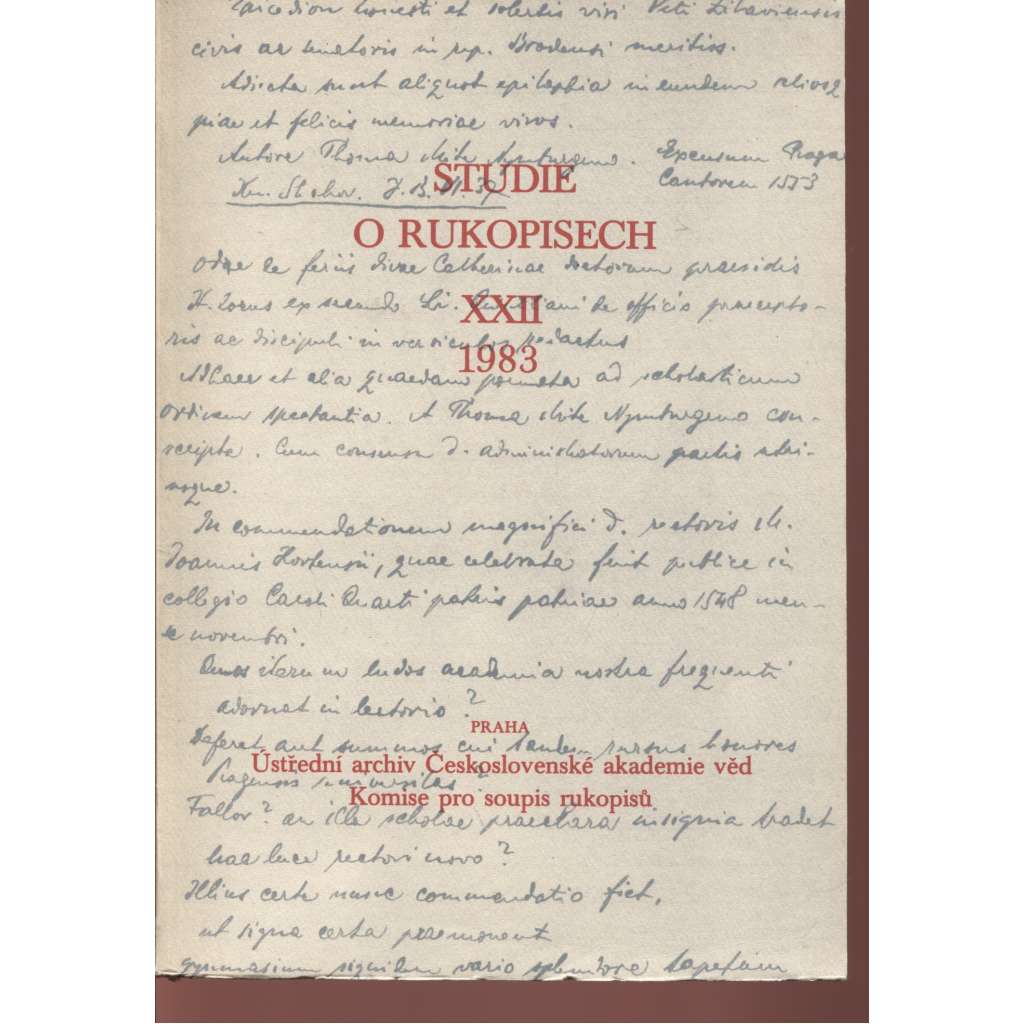 Epicedion honesti et solertis viri Viti Zitaviensis
civis ac senatoris in rep. Brodensi meritiss.
Adiecta sunt aliquot epitaphia in eundem aliosq
piae et felicis memoriae viros.
Autore Thoma Mite Nymburgeno. Excusum Praga
Cantorem 1553
Kn. Strahov.
STUDIE
O RUKOPISECH
Odae de feriis divae Catherinae doctorum praesidis
XXII
ex secundo Li. de officio praecepto-
ris ac discipuli in versiculos redactus
1983
Adhaec et alia quaedam poemata ad scholasticum
ordinem spectantia. A Thoma Mite Nymburgeno con-
scripta. Cum consensu d. administratorum partis utri-
usque.
In commendationem magnifici d. rectoris M.
Joannis Hortensii, quae celebrata fuit publice in
collegio Caroli Quarti patris patriae anno 1548 men-
se novembri.
iterum ludos academia nostra frequenti
adornat in lectorio?
PRAHA
Deferat aut summos cui tandem rursus honores
Ústřední archiv Československé akademie věd
Pragensis universitas?
Komise pro soupis rukopisů
Fallor? an illa scholae praeclara insignia tradet
hac luce rectori novo?
Illius certe nunc commendatio fiet,
ut signa certa praemonent
gymnasium signidem vario splendore tapetum